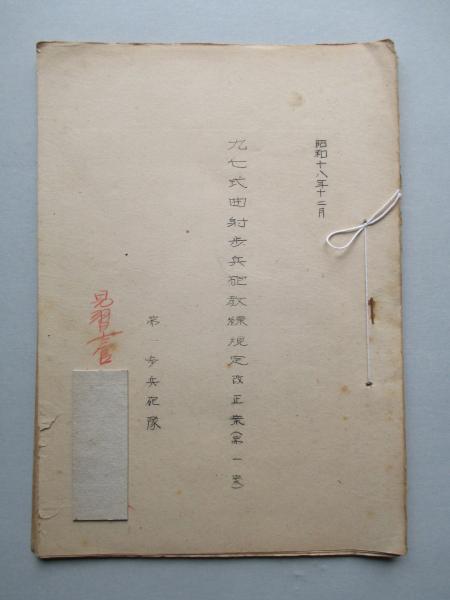 昭和十八年十二月
九七式曲射歩兵砲教練規定改正案(第一案)
第一歩兵砲隊
見習士官